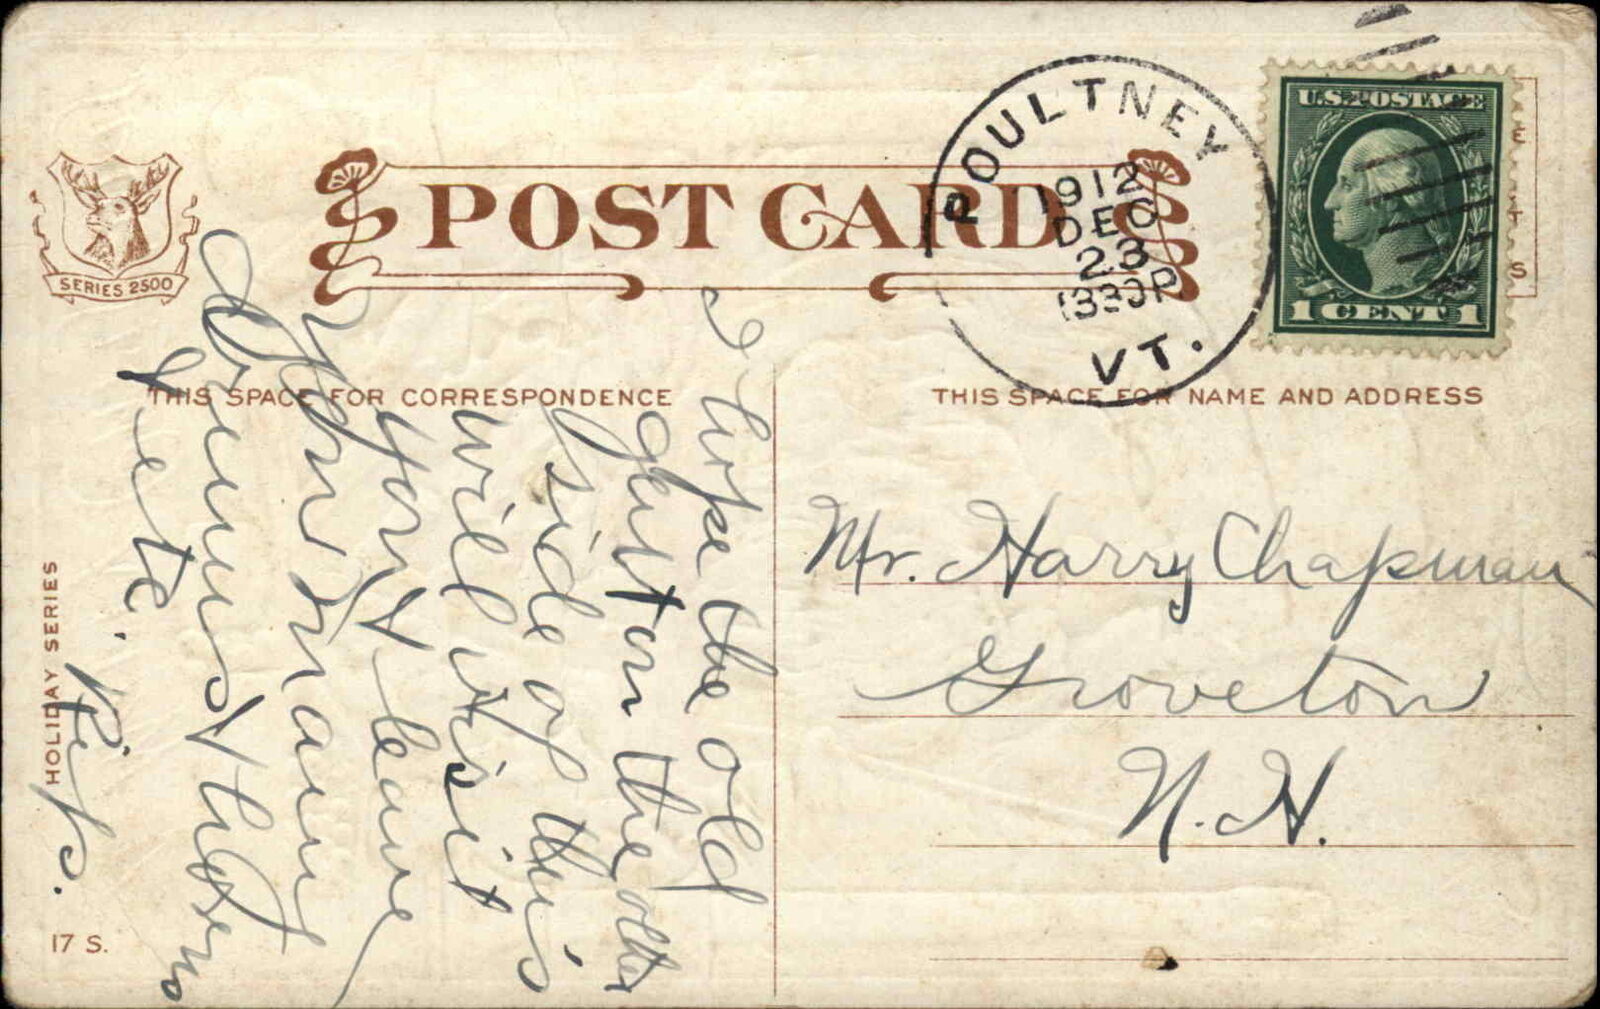 SERIES 2500
POST CARD
POULTNEY
1912
DEC
23
1330P
VT.
U.S. POSTAGE
1 CENT 1
THIS SPACE FOR CORRESPONDENCE
THIS SPACE FOR NAME AND ADDRESS
I hope the old
gent on the other
side of this
will visit
you & leave
you many
& thorns
& etc. Rip.
Mr. Harry Chapman
Groveton
N. H.
HOLIDAY SERIES
17 S.